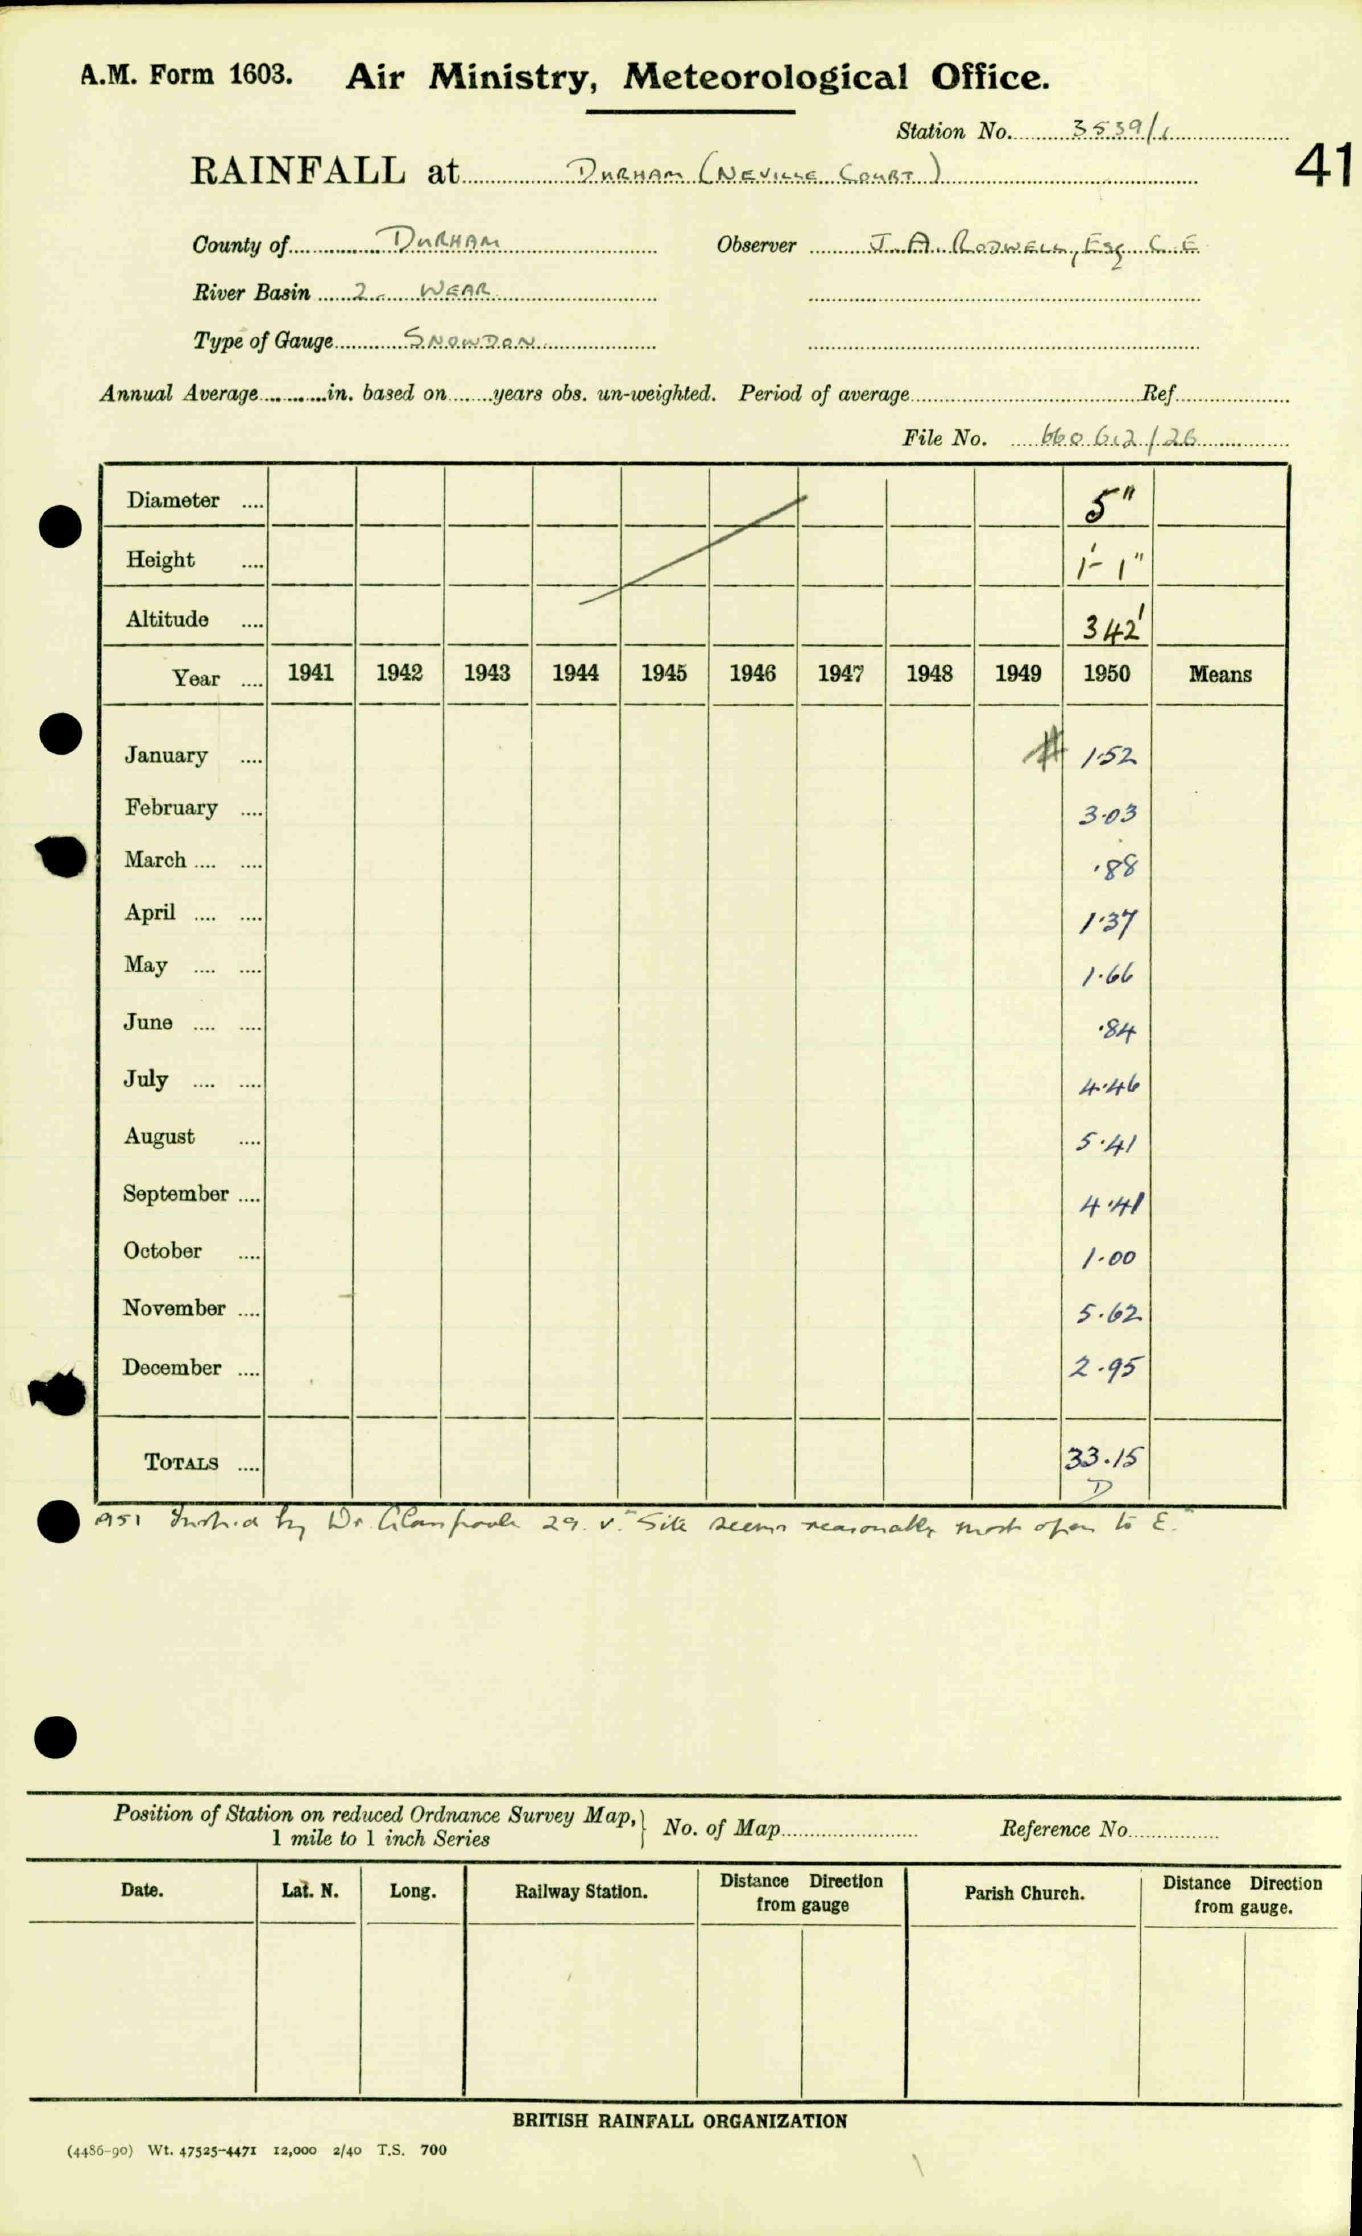 A.M. Form 1603. Air Ministry, Meteorological Office.
Station No. 3539/1
41
RAINFALL at DURHAM (NEVILLE COURT)
County of DURHAM Observer J. A. RODWELL, Esq C.E
River Basin 2. WEAR
Type of Gauge SNOWDON
Annual Average in. based on years obs. un-weighted. Period of average Ref.
File No. 660612/26
Diameter .... 5"
Height .... 1'-1"
Altitude .... 342'
Year .... 1941 1942 1943 1944 1945 1946 1947 1948 1949 1950 Means
January .... # 1.52
February .... 3.03
March .... .... .88
April .... .... 1.37
May .... .... 1.66
June .... .... .84
July .... .... 4.46
August .... 5.41
September .... 4.41
October .... 1.00
November .... 5.62
December .... 2.95
TOTALS .... 33.15
D
1951 by Dr. Glasspoole 29. v. "Site seems reasonable, most open to E."
Position of Station on reduced Ordnance Survey Map, } No. of Map Reference No.
1 mile to 1 inch Series
Date. Lat. N. Long. Railway Station. Distance Direction from gauge Parish Church. Distance Direction from gauge.
BRITISH RAINFALL ORGANIZATION
(4486-90) Wt. 47525-4471 12,000 2/40 T.S. 700